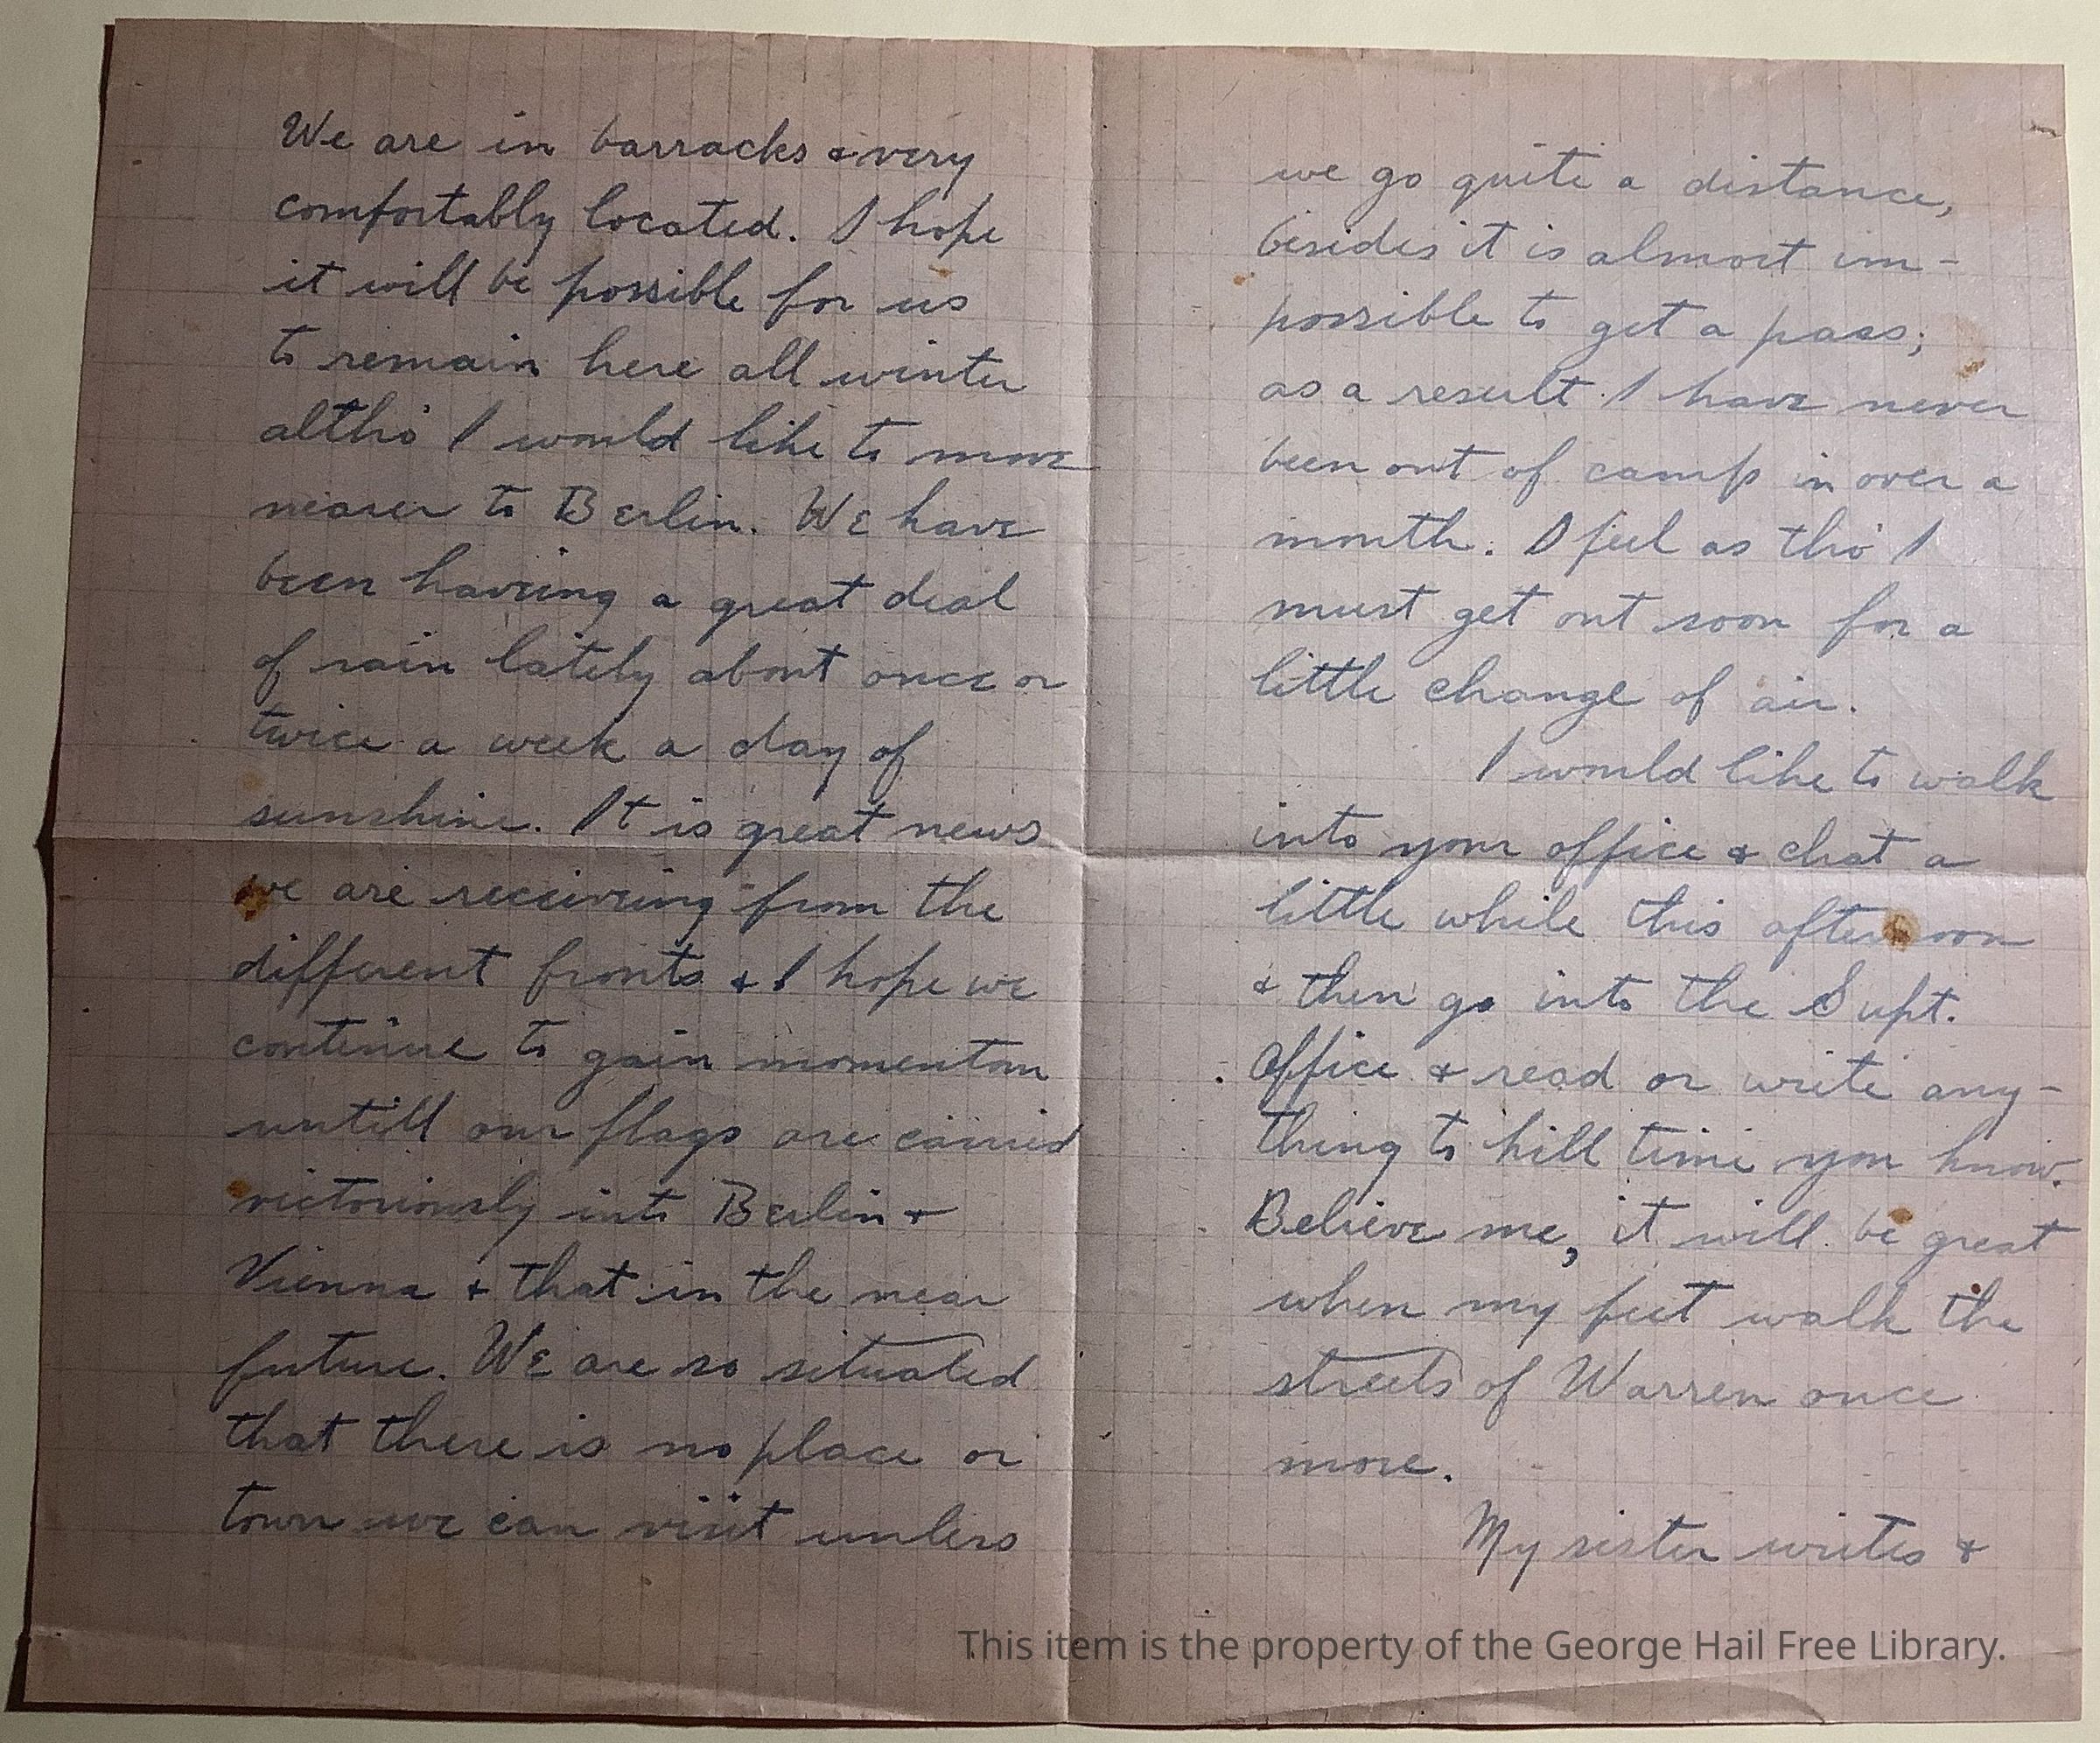 We are in barracks & very
comfortably located. I hope
it will be possible for us
to remain here all winter
altho' I would like to move
nearer to Berlin. We have
been having a great deal
of rain lately about once or
twice a week a day of
sunshine. It is great news
we are receiving from the
different fronts & I hope we
continue to gain momentum
untill our flags are carried
victoriously into Berlin &
Vienna & that in the near
future. We are so situated
that there is no place or
town we can visit unless
we go quite a distance,
besides it is almost im-
possible to get a pass;
as a result I have never
been out of camp in over a
month. I feel as tho' I
must get out soon for a
little change of air.
I would like to walk
into your office & chat a
little while this afternoon
& then go into the Supt.
Office & read or write any-
thing to kill time you know.
Believe me, it will be great
when my feet walk the
streets of Warren once
more.
My sister writes &
This item is the property of the George Hail Free Library.